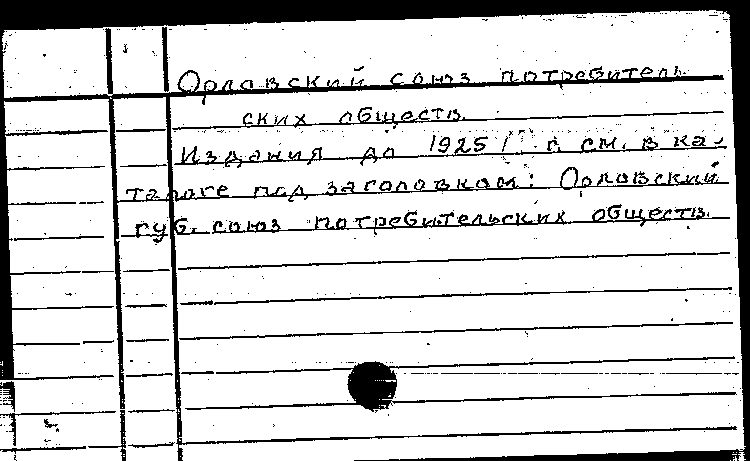 Орловский союз потребитель
ских обществ.
Издания до 1925 г. см. в ка-
талоге под заголовком: Орловский
губ. союз потребительских обществ.